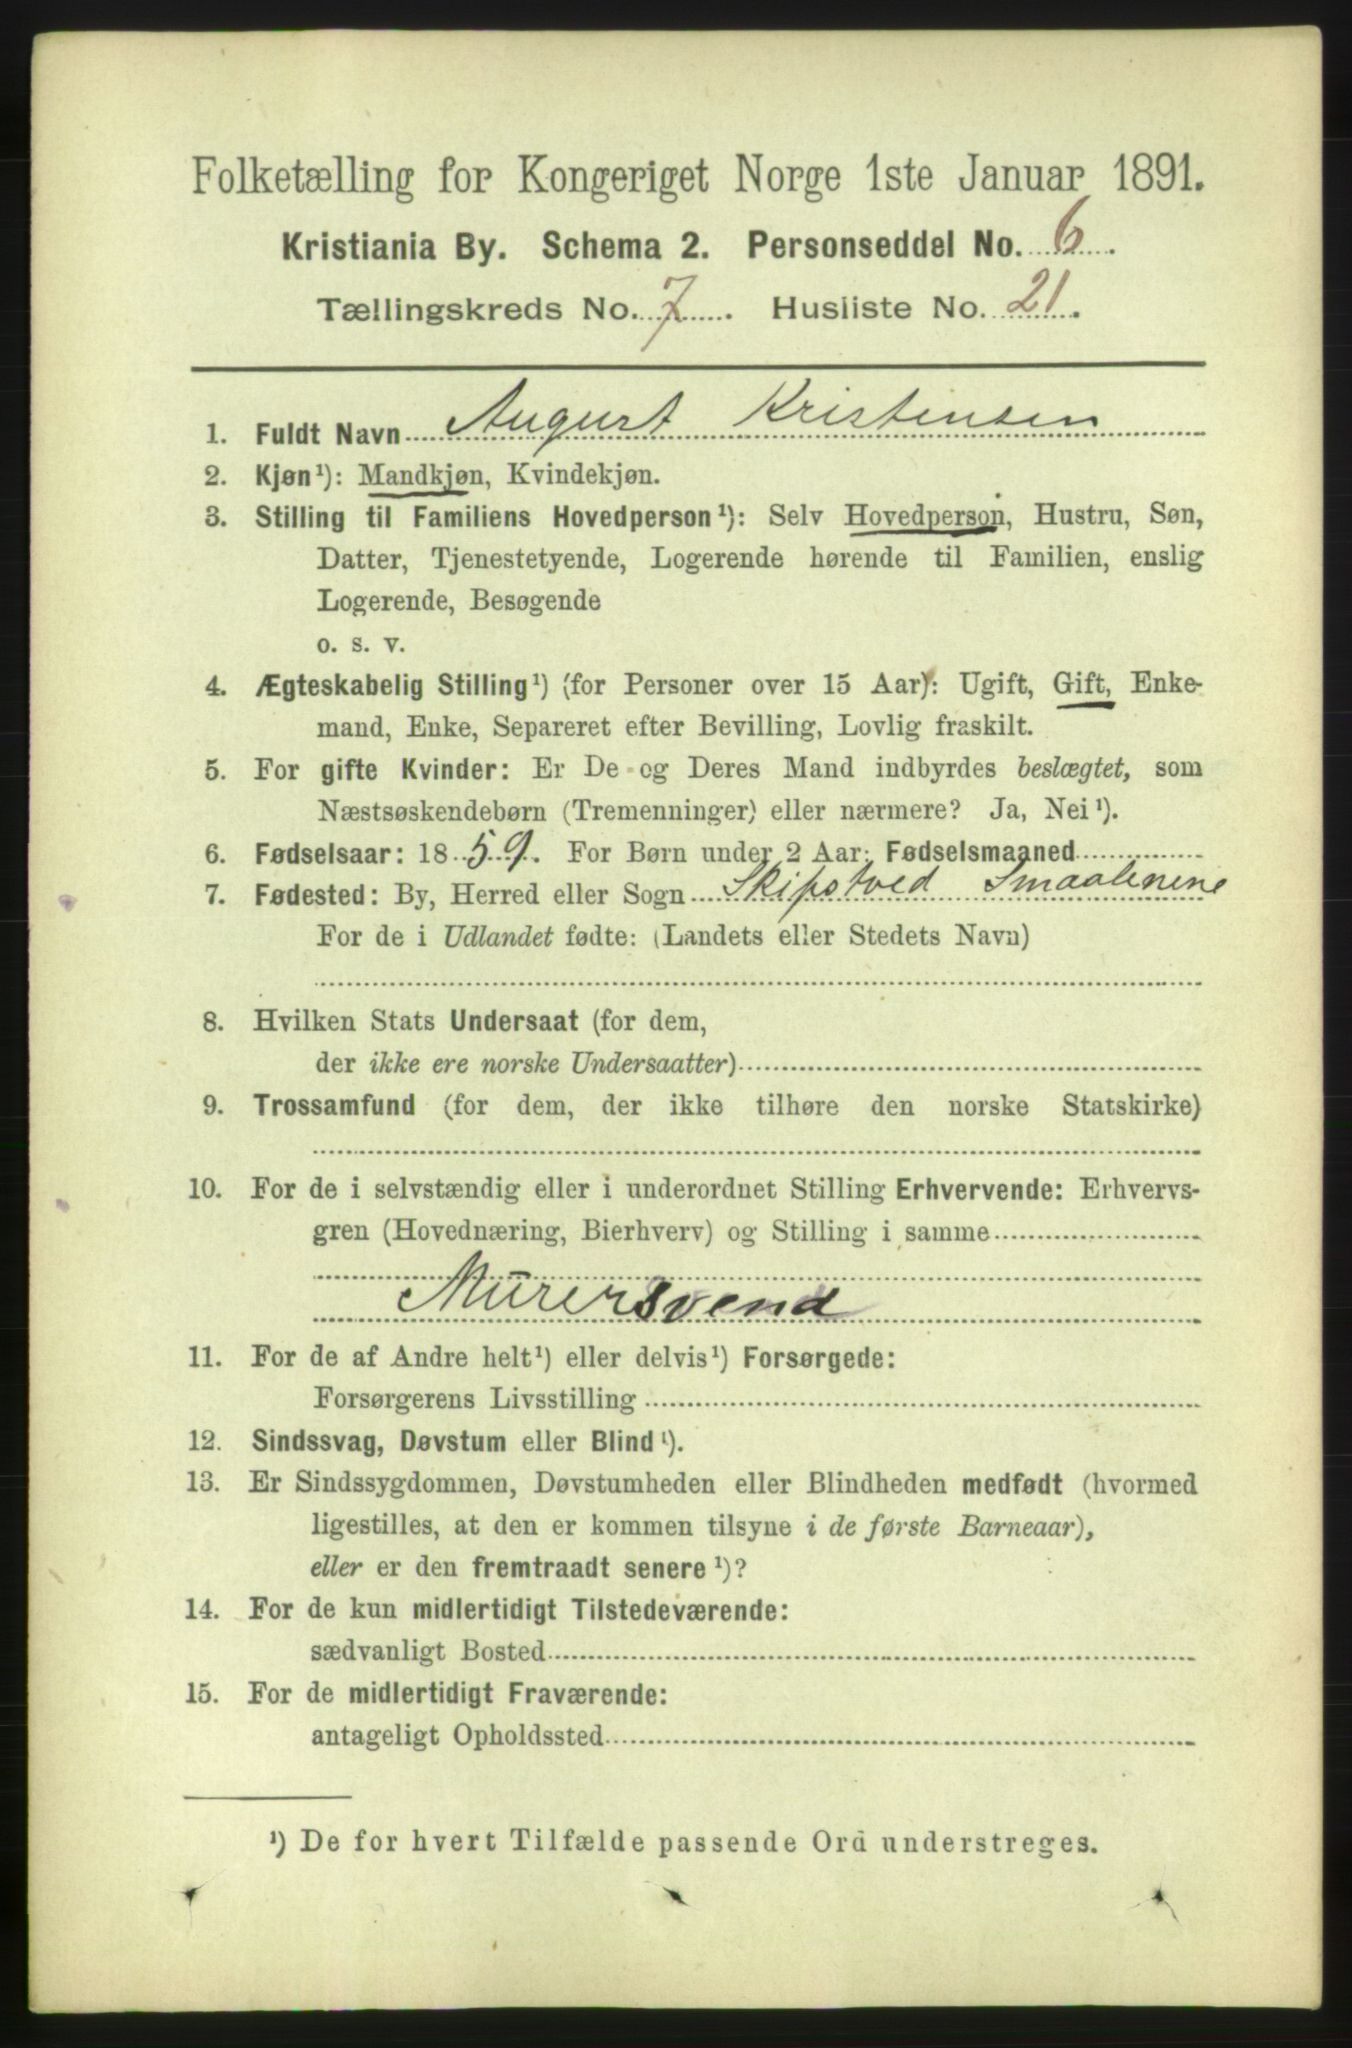 Folketælling for Kongeriget Norge 1ste Januar 1891.
Kristiania By. Schema 2. Personseddel No. 6.
Tællingskreds No. 7. Husliste No. 21.
1. Fuldt Navn August Kristensen
2. Kjøn¹): Mandkjøn, Kvindekjøn.
3. Stilling til Familiens Hovedperson¹): Selv Hovedperson, Hustru, Søn,
Datter, Tjenestetyende, Logerende hørende til Familien, enslig
Logerende, Besøgende
o. s. v.
4. Ægteskabelig Stilling¹) (for Personer over 15 Aar): Ugift, Gift, Enke-
mand, Enke, Separeret efter Bevilling, Lovlig fraskilt.
5. For gifte Kvinder: Er De og Deres Mand indbyrdes beslægtet, som
Næstsøskendebørn (Tremenninger) eller nærmere? Ja, Nei¹).
6. Fødselsaar: 1859. For Børn under 2 Aar: Fødselsmaaned
7. Fødested: By, Herred eller Sogn Skipstved Smaalenene
For de i Udlandet fødte: (Landets eller Stedets Navn)
8. Hvilken Stats Undersaat (for dem,
der ikke ere norske Undersaatter)
9. Trossamfund (for dem, der ikke tilhøre den norske Statskirke)
10. For de i selvstændig eller i underordnet Stilling Erhvervende: Erhvervs-
gren (Hovednæring, Bierhverv) og Stilling i samme
Murersvend
11. For de af Andre helt¹) eller delvis¹) Forsørgede:
Forsørgerens Livsstilling
12. Sindssvag, Døvstum eller Blind¹).
13. Er Sindssygdommen, Døvstumheden eller Blindheden medfødt (hvormed
ligestilles, at den er kommen tilsyne i de første Barneaar),
eller er den fremtraadt senere¹)?
14. For de kun midlertidigt Tilstedeværende:
sædvanligt Bosted
15. For de midlertidigt Fraværende:
antageligt Opholdssted
¹) De for hvert Tilfælde passende Ord understreges.